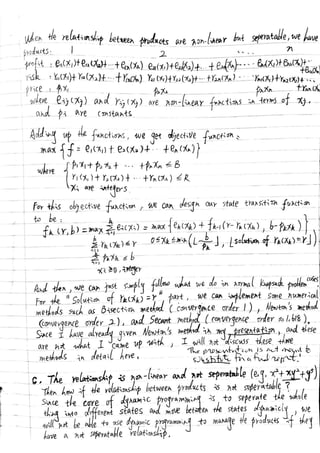 When the relationship between products are non-linear but seperatable, we have
products: 1 2 ... n
profit: e₁₁(x₁)+e₁₂(x₂)+ ... +e₁ₙ(xₙ)
risk
price: p₁x₁ p₂x₂ pₙxₙ
where eij(xj) and rij(xj) are non-linear functions in terms of xj.
and pi are constants
Adding up the functions, we get objective function:
max { f = e₁(x₁) + e₂(x₂) + ... + eₙ(xₙ) }
where { p₁x₁ + p₂x₂ + ... + pₙxₙ ≤ B
r₁(x₁) + r₂(x₂) + ... + rₙ(xₙ) ≤ R
xi are integers
For this objective function, we can design our state transition function
to be:
xi ≥ 0, integer
And then, we can just simply follow what we do in normal knapsack problem cases
For the "Solution of rₖ(xₖ)=r" part, we can implement some numerical
methods such as Bisection method (convergence order 1), Newton's method
(convergence order 2), and Secant method (convergence order ≈1.618).
Since I have already given Newton's method in my presentation, and these
are not what I came up with, I will not discuss these three
methods in detail here.
The presentation is not meant to
substitute for a final report.
C. The relationship is non-linear and not seperatable (e.g. x²+xy+y²)
Then how if the relationship between products is not seperatable?
Since the core of dynamic programming is to seperate the whole
thing into different states and move between the states dynamicly, we
will not be able to use dynamic programming to manage the products if they
have a not seperatable relationship.